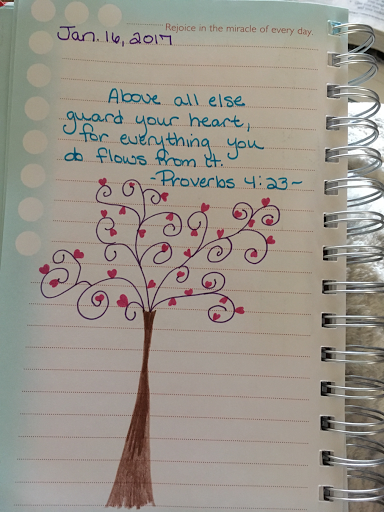 Rejoice in the miracle of every day.
Jan. 16, 2017
Above all else
guard your heart,
for everything you
do flows from it.
-Proverbs 4:23~